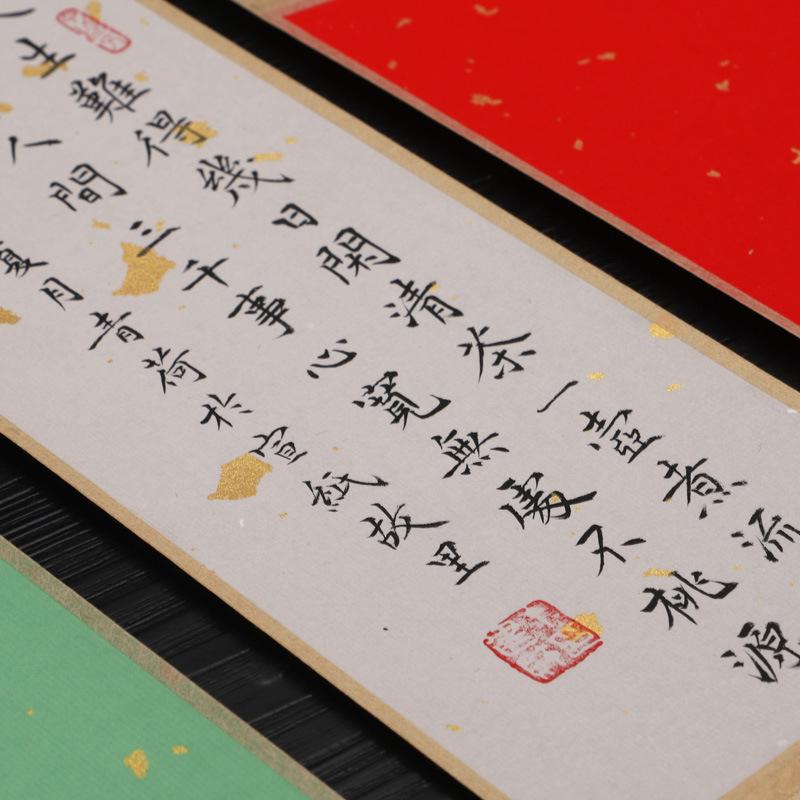 生難得幾日閑清茶一壺煮流
人間三千事心寬無處不桃源
夏月青荷於宣紙故里